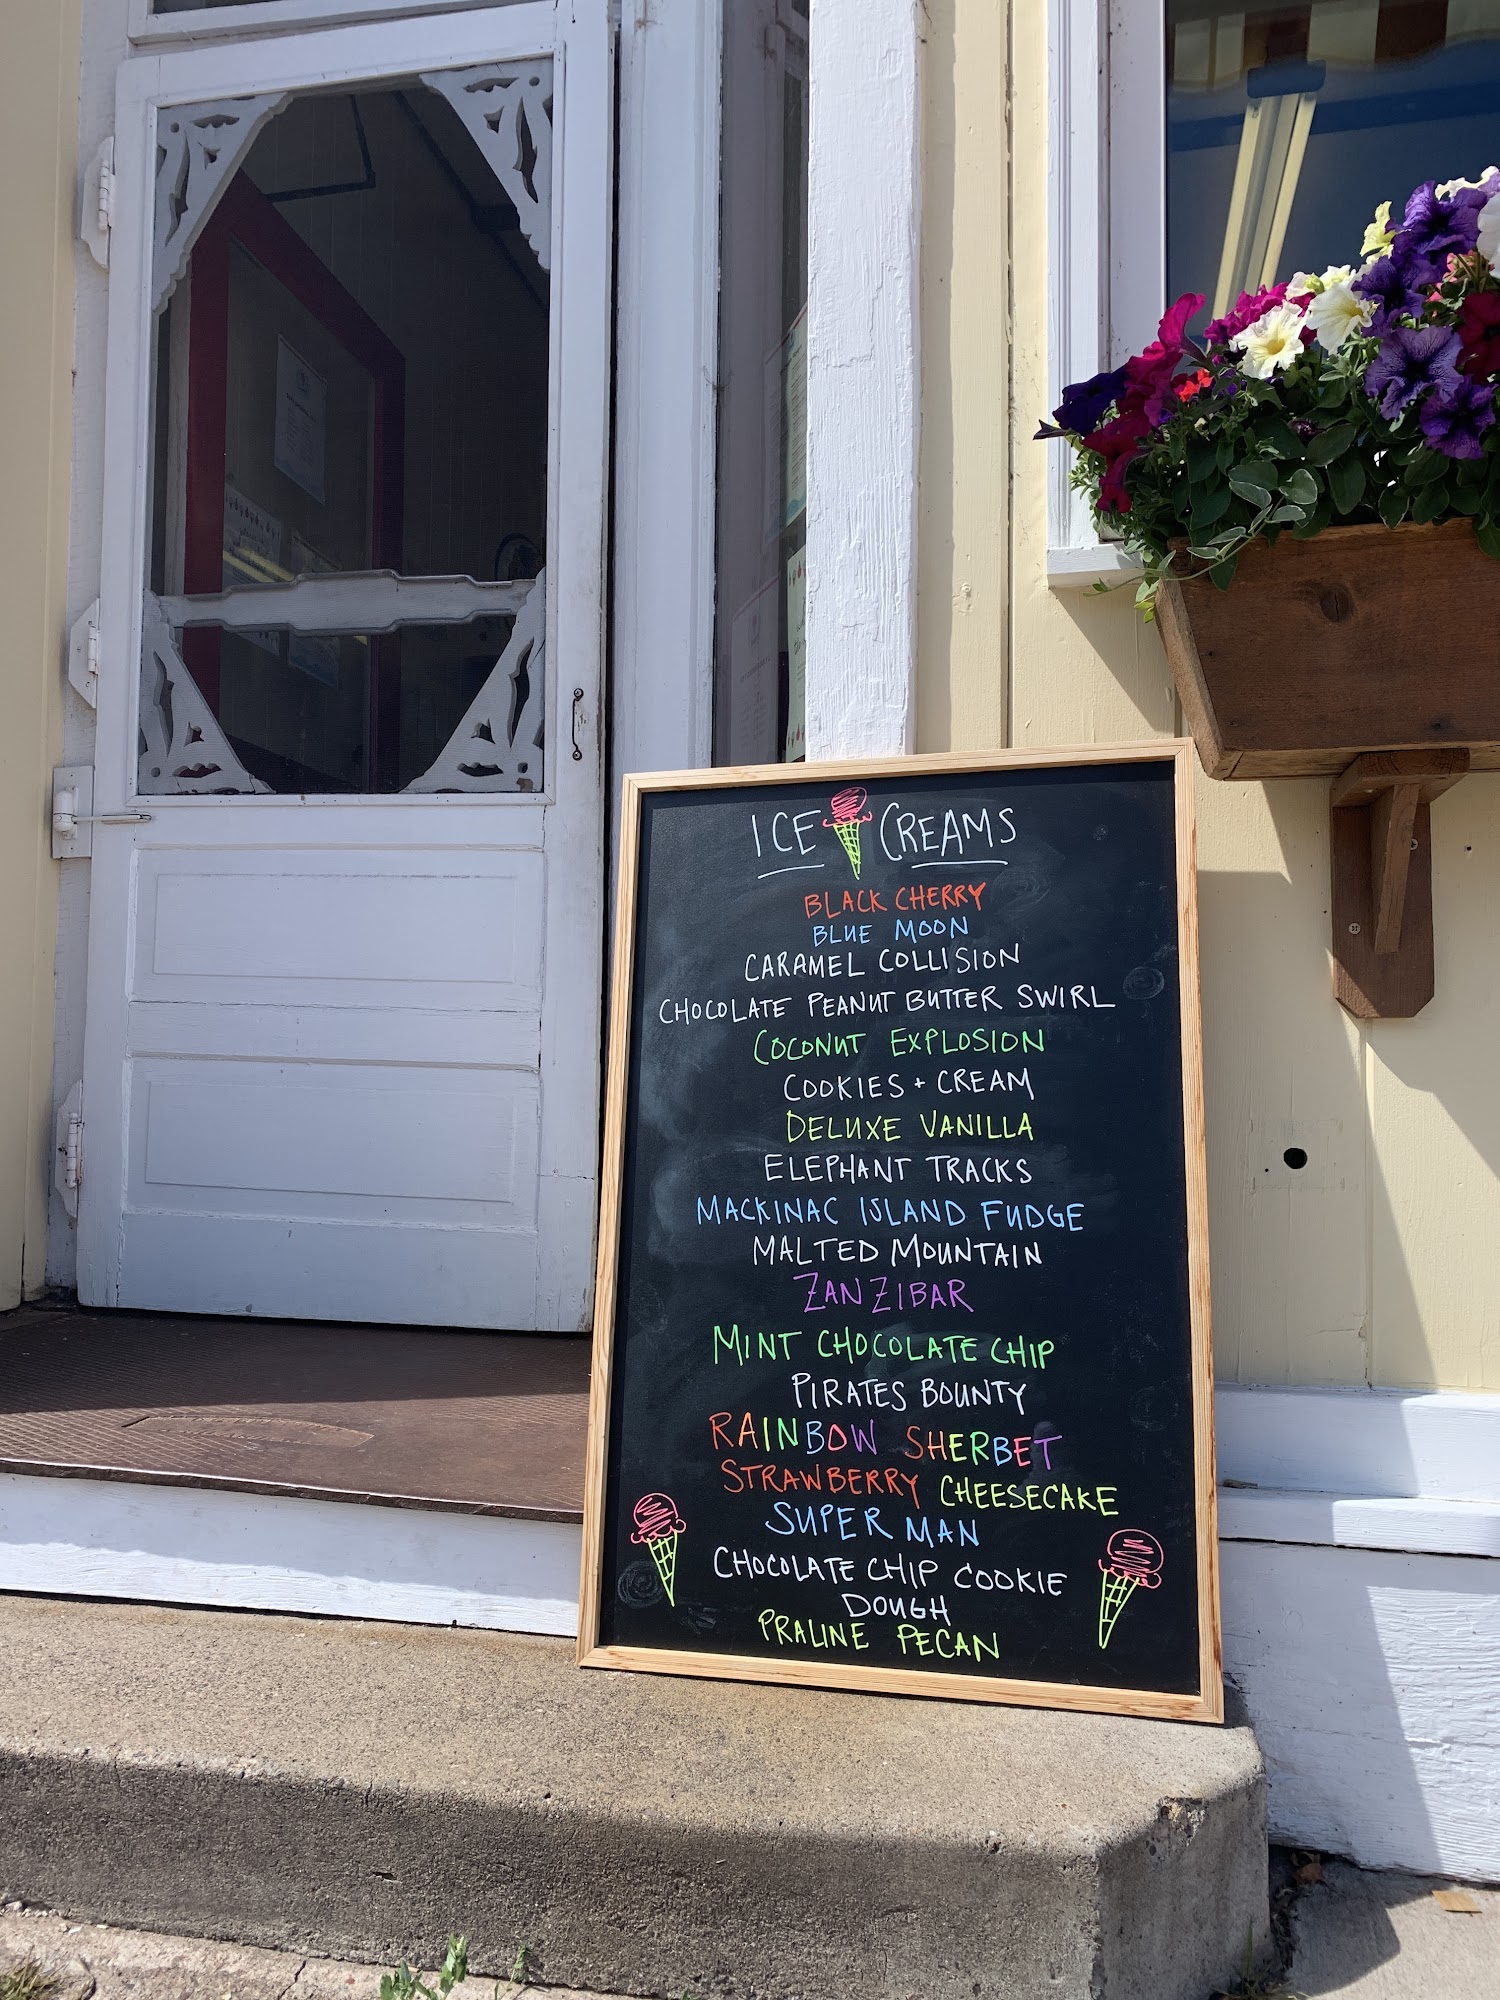 ICE CREAMS
BLACK CHERRY
BLUE MOON
CARAMEL COLLISION
CHOCOLATE PEANUT BUTTER SWIRL
COCONUT EXPLOSION
COOKIES + CREAM
DELUXE VANILLA
ELEPHANT TRACKS
MACKINAC ISLAND FUDGE
MALTED MOUNTAIN
ZANZIBAR
MINT CHOCOLATE CHIP
PIRATES BOUNTY
RAINBOW SHERBET
STRAWBERRY CHEESECAKE
SUPER MAN
CHOCOLATE CHIP COOKIE
DOUGH
PRALINE PECAN